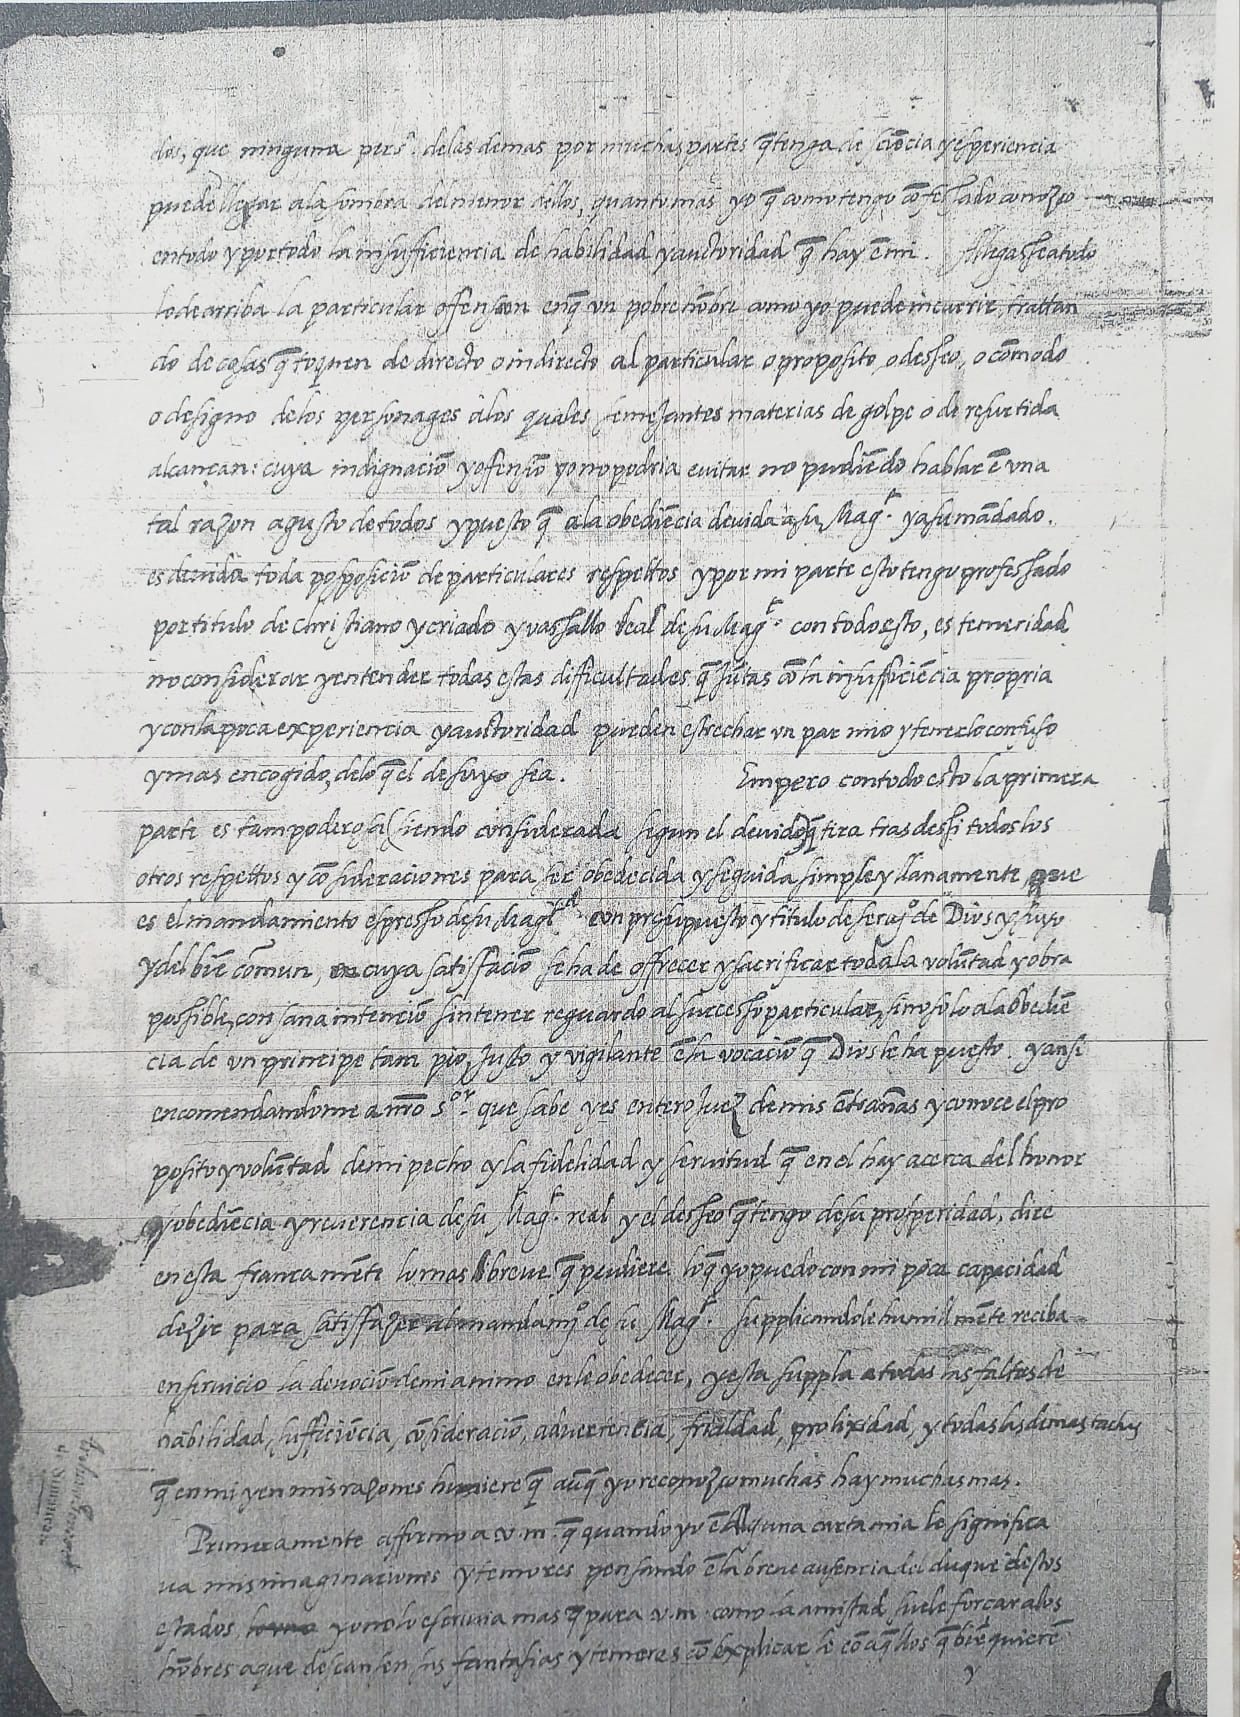 dos, que ninguna pers.ª delas demas por muchas partes q̃ tenga de sciẽcia y esperiencia
puede llegar ala sombra del menor dellos, quanto mas yo q̃ como tengo cõfessado conozco
en todo y por todo la insufficiencia de habilidad y auctoridad q̃ hay ẽ mi. Allegasse a todo
lo de arriba la particular offension enq̃ vn pobre hõbre como yo puede incurrir, trattan
do de cosas q̃ toquen de directo o indirecto al particular o proposito, o desseo, o cõmodo
o designo delos personages alos quales semejantes materias de golpe o de resurtida
alcançan: cuya indignaciõ y ofensiõ yo no podria euitar no pudiẽdo hablar ẽ vna
tal razon a gusto de todos y puesto q̃ ala obediẽcia deuida a su Mag.ᵗ y a su mãdado.
es deuida toda posposiciõ de particulares respettos y por mi parte esto tengo professado
por titulo de christiano y criado y vassallo leal de su Mag.ᵗ con todo esto, es temeridad
no considerar y entender todas estas difficultades q̃ jũtas cõ la insufficiẽcia propria
y con la poca experiencia y auctoridad pueden estrechar vn par mio y tenerlo confuso
y mas encogido, delo q̃ el de suyo sea. Empero con todo esto la primera
parte es tam poderosa (siendo considerada segun el deuido) q̃ tira tras de ssi todos los
otros respettos y cõsideraciones para ser obedecida y seguida simple y llanamente que
es el mandamiento espresso de su Mag.ᵈ con presupuesto y titulo de seruj.º de Dios y suyo
y del biẽ comun, en cuya satisfaciõ se ha de offrecer y sacrificar toda la volũtad y obra
possible, con sana intenciõ sin tener reguardo al successo particular, sino solo ala obediẽ
cia de vn principe tam pio, justo y vigilante ẽ la vocaciõ q̃ Dios le ha puesto. y ansi
encomendandome a nr̃o s.ºʳ que sabe y es entero juez de mis ẽtrañas y conoce el pro
posito y volũtad de mi pecho y la fidelidad y seruitud q̃ en el hay acerca del honor
y obediẽcia y reuerencia de su Mag.ᵗ real y el desseo q̃ tengo de su prosperidad, dire
en esta francamẽte lo mas breue q̃ pudiere lo q̃ yo puedo con mi poca capacidad
dezir para satisfazer al mandamj.º de su Mag.ᵗ supplicandole humilmẽte reciba
en seruicio la deuociõ de mi animo en le obedecer, y esta suppla a todas las faltas de
habilidad, sufficiẽcia, cõsideraciõ, aduertencia, frialdad, prolixidad, y todas las demas tachas
q̃ en mi y en mis razones huuiere q̃ aũq̃ yo reconozco muchas hay muchas mas.
Primeramente affirmo a v.m. q̃ quando yo ẽ alguna carta mia le significa
ua mis imaginaciones y temores pensando ẽ la breue ausencia del duque destos
estados, yo no lo escriuia mas q̃ para v.m. como la amistad suele forçar alos
hõbres a que descansen sus fantasias y temores cõ explicar le cõ aq̃llos q̃ biẽ quierẽ
y